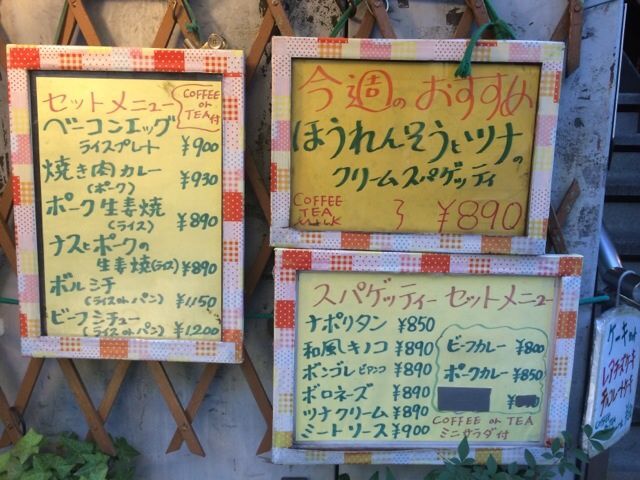 セットメニュー
COFFEE
or
TEA付
ベーコンエッグ
ライスプレート ¥900
焼き肉カレー
(ポーク) ¥930
ポーク生姜焼
(ライス) ¥890
ナスとポークの
生姜焼(ライス) ¥890
ボルシチ
(ライスorパン) ¥1150
ビーフシチュー
(ライスorパン) ¥1200
今週のおすすめ
ほうれんそうとツナの
クリームスパゲッティ
COFFEE
TEA
MILK
¥890
スパゲッティーセットメニュー
ナポリタン ¥850
和風キノコ ¥890
ボンゴレビアンコ ¥890
ボロネーズ ¥890
ツナクリーム ¥890
ミートソース ¥900
ビーフカレー ¥800
ポークカレー ¥850
COFFEE or TEA
ミニサラダ付
レアチーズケーキ